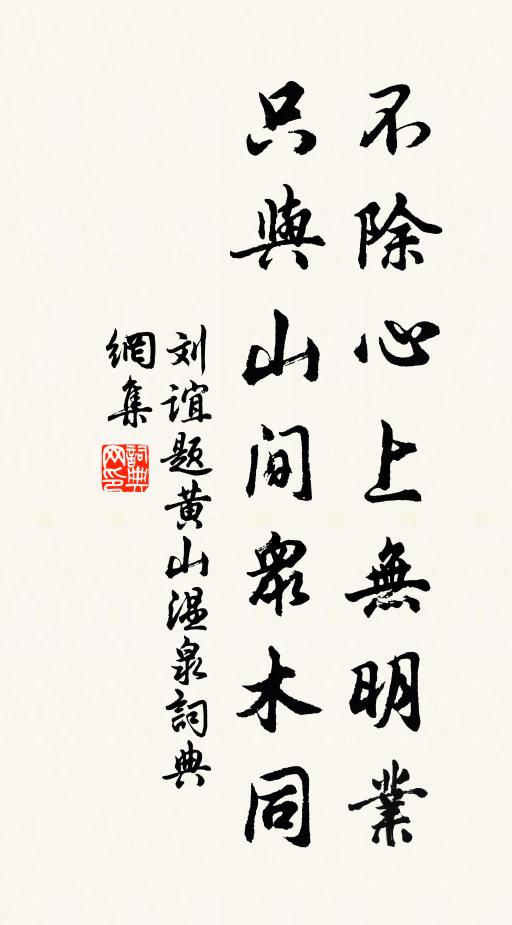 不除心上無明業
只與山間眾木同
刘誼题黄山温泉詞典
網集
詞典
网印